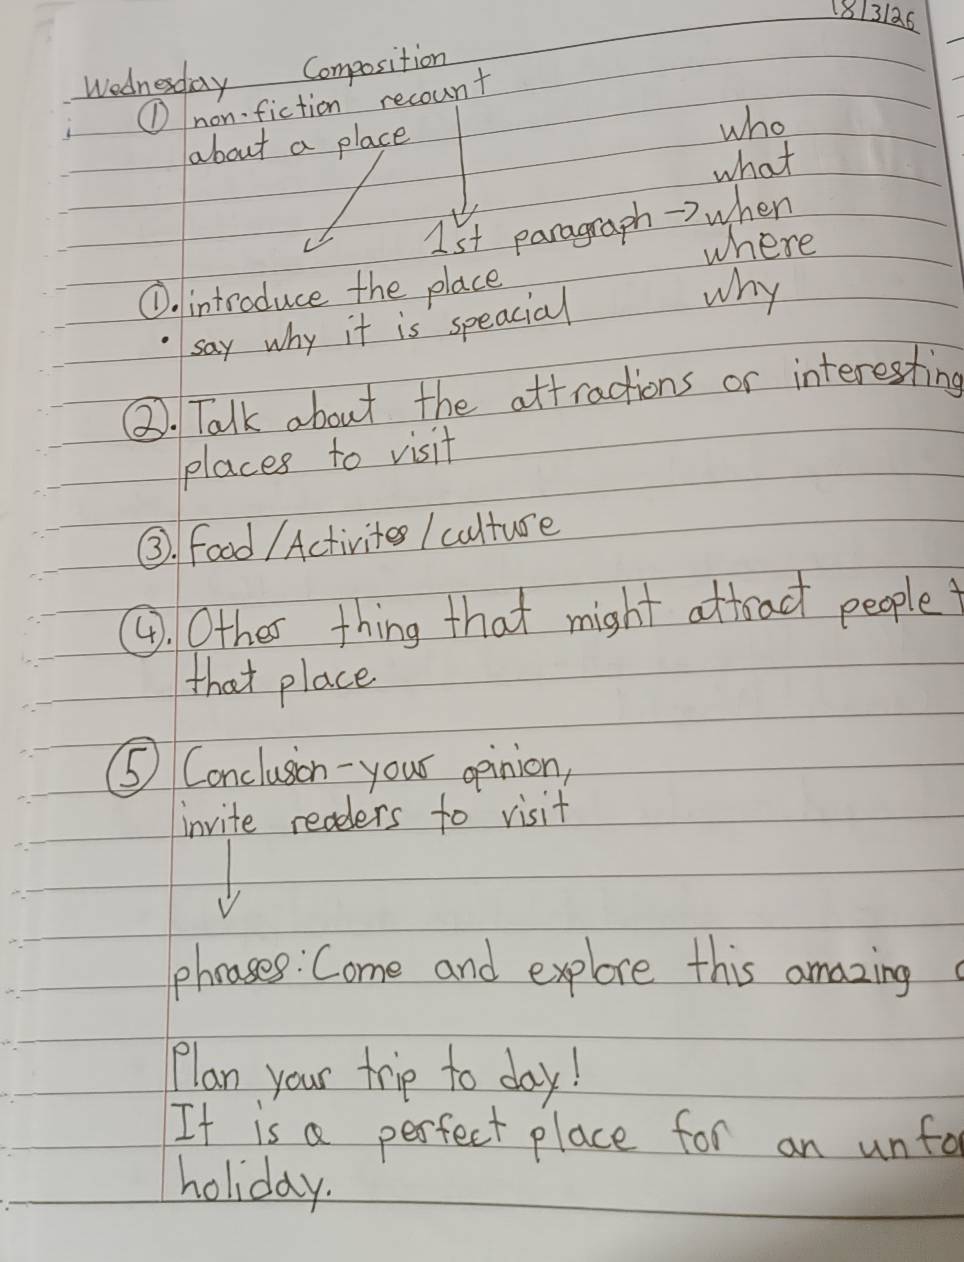 18/3/26
Wednesday Composition
① non-fiction recount
about a place
who
what
1st paragraph → when
where
why
①. introduce the place
• say why it is speacial
②. Talk about the attractions or interesting
places to visit
③. Food / Activites / culture
④. Other thing that might attract people t
that place
⑤ Conclusion - your opinion,
invite readers to visit
phrases: Come and explore this amazing
Plan your trip to day!
It is a perfect place for an unfo
holiday.